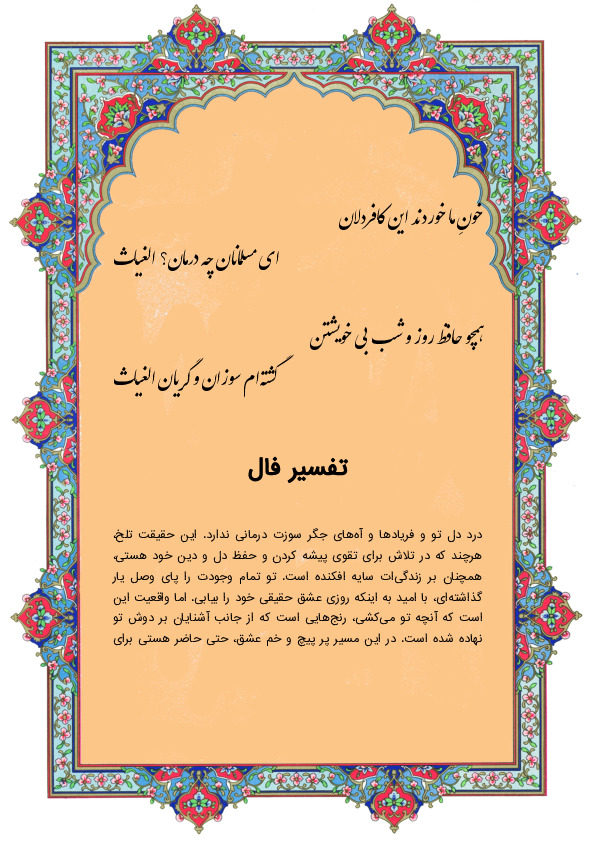 خونِ ما خوردند این کافردلان
ای مسلمانان چه درمان؟ الغیاث
همچو حافظ روز و شب بی خویشتن
گشته‌ام سوزان و گریان الغیاث
تفسیر فال
درد دل تو و فریادها و آه‌های جگر سوزت درمانی ندارد. این حقیقت تلخ،
هرچند که در تلاش برای تقوی پیشه کردن و حفظ دل و دین خود هستی،
همچنان بر زندگی‌ات سایه افکنده است. تو تمام وجودت را پای وصل یار
گذاشته‌ای، با امید به اینکه روزی عشق حقیقی خود را بیابی. اما واقعیت این
است که آنچه تو می‌کشی، رنج‌هایی است که از جانب آشنایان بر دوش تو
نهاده شده است. در این مسیر پر پیچ و خم عشق، حتی حاضر هستی برای